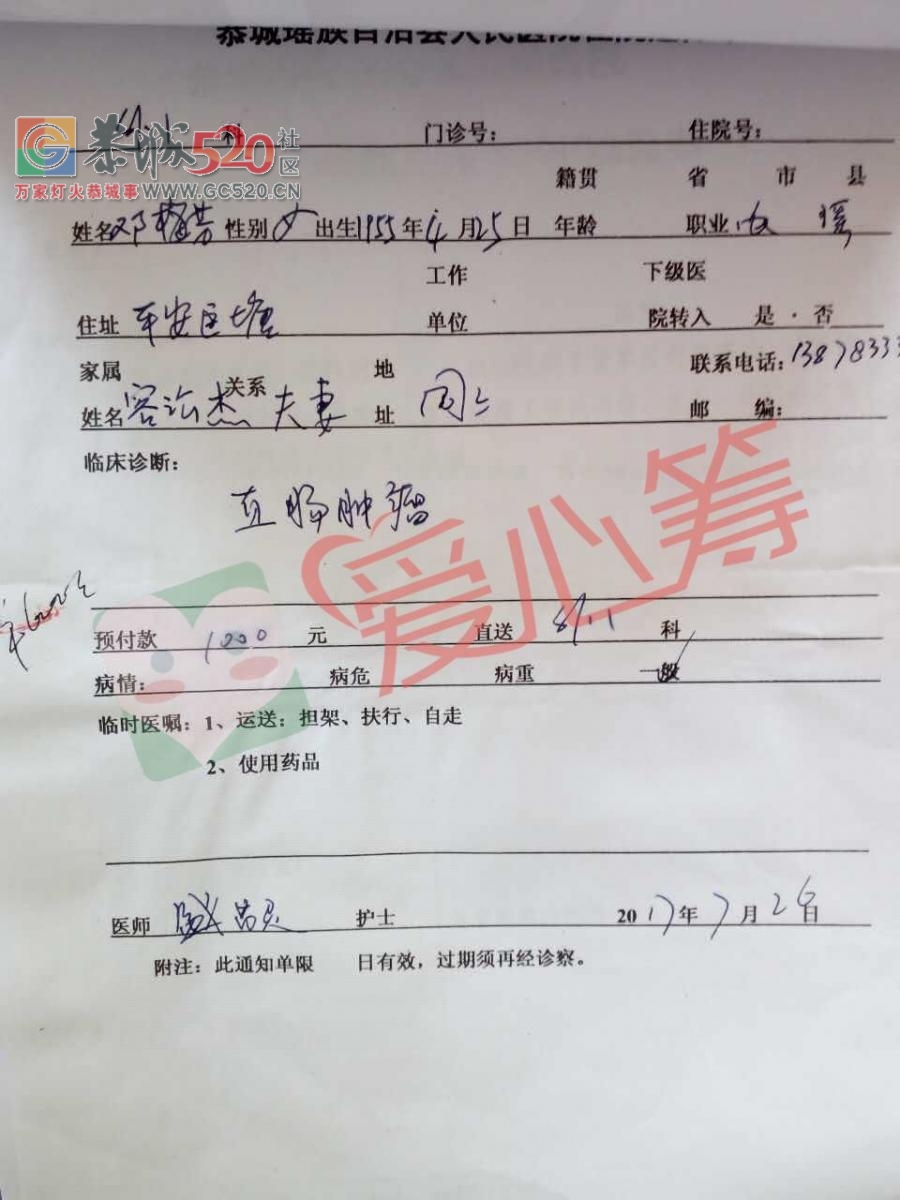 恭城瑶族自治县人民医院住院通知
恭城520社区
万家灯火恭城事 WWW.GC520.CN
科 门诊号: 住院号:
籍贯 省 市 县
姓名 邓梅芳 性别 女 出生1955年4月25日 年龄 职业 农 瑶
工作 下级医
住址 平安 单位 院转入 是·否
家属 关系 地 联系电话:13878333
姓名 容沄杰 夫妻 址 同上 邮 编:
临床诊断:
直肠肿瘤
爱心筹
预付款 1000 元 直送 外一 科
病情: 病危 病重 一般
临时医嘱:1、运送:担架、扶行、自走
2、使用药品
医师 护士 2017年7月26日
附注:此通知单限 日有效,过期须再经诊察。